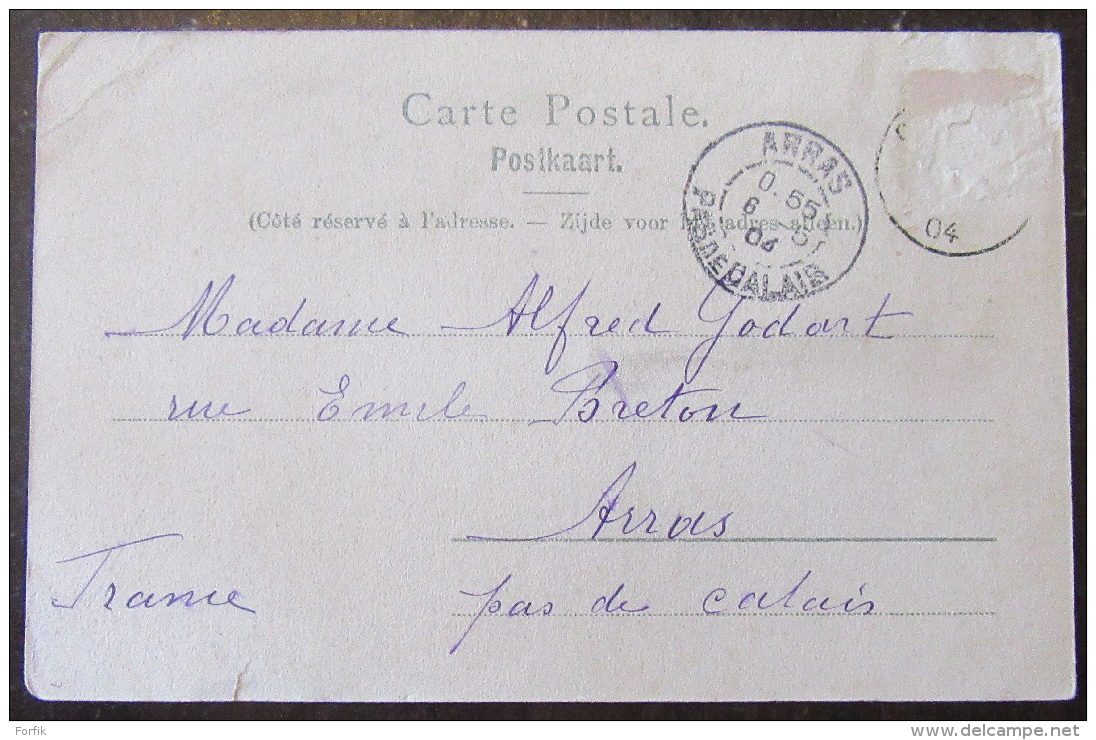 Carte Postale.
Postkaart.
(Côté réservé à l'adresse. — Zijde voor het adres alleen.)
ARRAS
0.55
6 - 5
04
PAS DE CALAIS
04
Madame Alfred Godart
rue Emile Breton
Arras
France
pas de calais
Forfik
delcampe.net